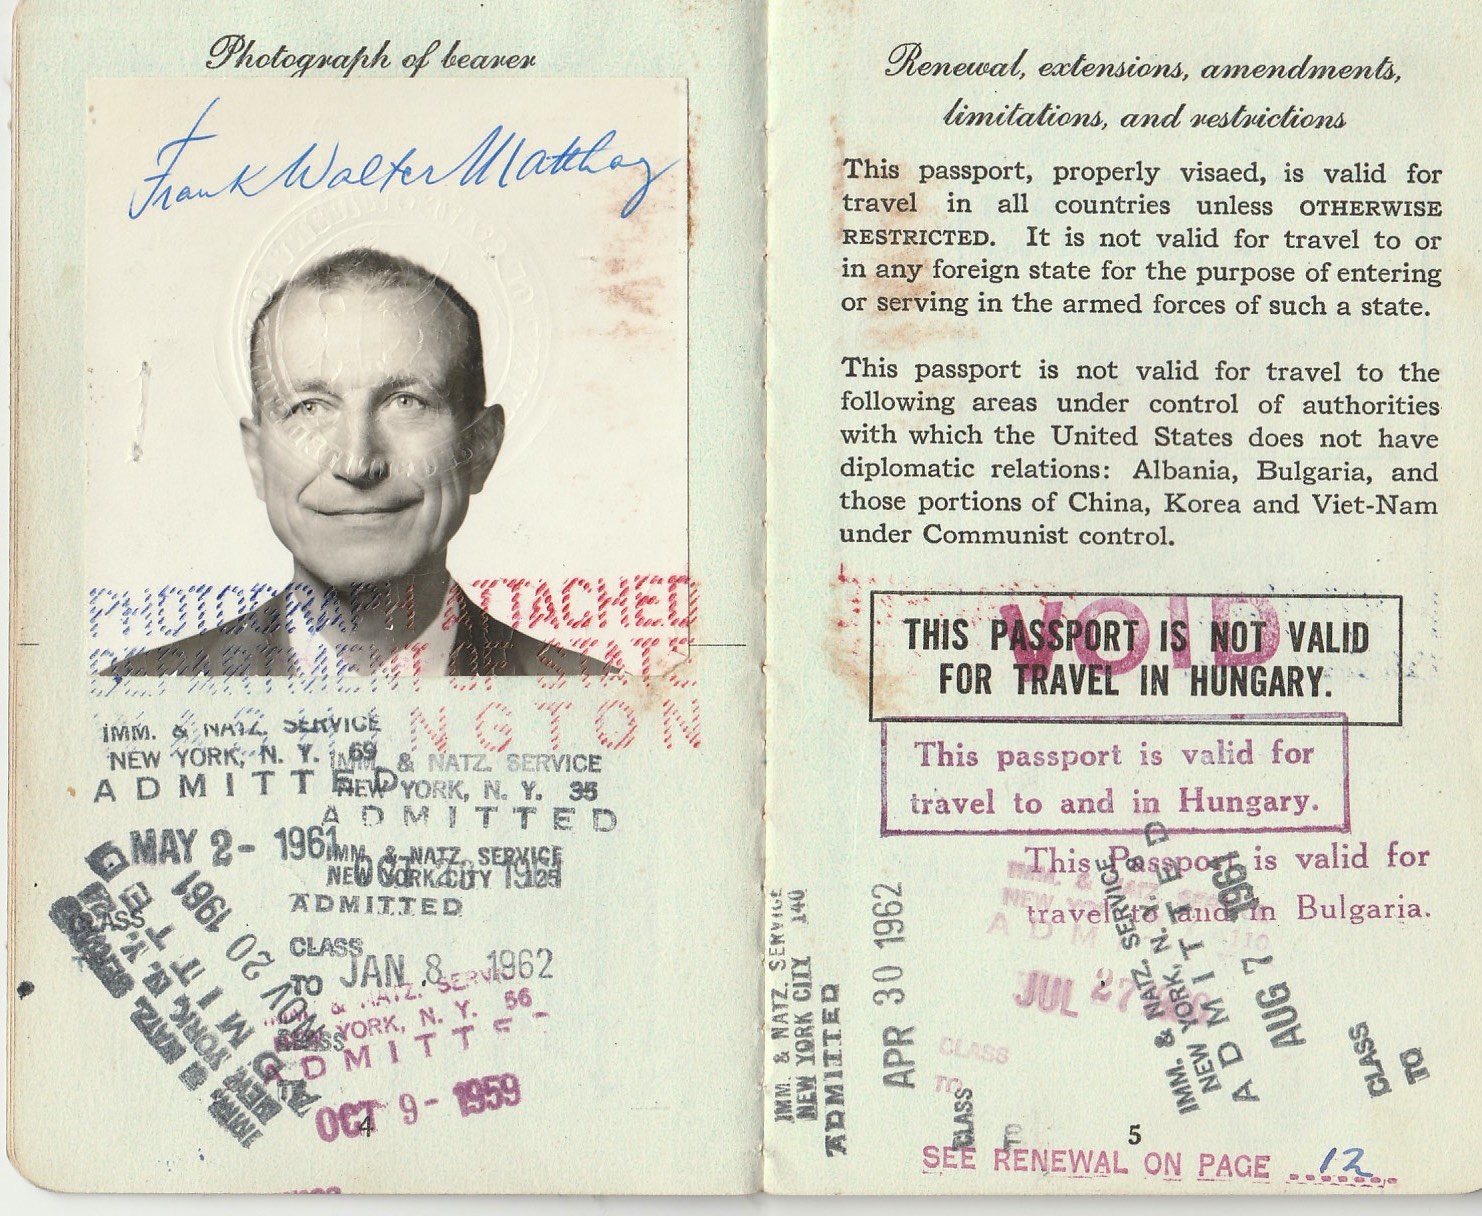 Photograph of bearer
Frank Walter Matthay
PHOTOGRAPH ATTACHED
DEPARTMENT OF STATE
WASHINGTON
IMM. & NATZ. SERVICE
NEW YORK, N. Y. 69
ADMITTED
MAY 2 - 1961
CLASS
IMM. & NATZ. SERVICE
NEW YORK, N. Y. 35
ADMITTED
OCT 1961
IMM. & NATZ. SERVICE
NEW YORK CITY 125
ADMITTED
CLASS
TO
JAN 8 1962
IMM. & NATZ. SERVICE
NEW YORK, N. Y.
ADMITTED
NOV 20 1961
CLASS
IMM. & NATZ. SERVICE
NEW YORK, N. Y. 56
ADMITTED
OCT 9 - 1959
4
Renewal, extensions, amendments,
limitations, and restrictions
This passport, properly visaed, is valid for
travel in all countries unless OTHERWISE
RESTRICTED. It is not valid for travel to or
in any foreign state for the purpose of entering
or serving in the armed forces of such a state.
This passport is not valid for travel to the
following areas under control of authorities
with which the United States does not have
diplomatic relations: Albania, Bulgaria, and
those portions of China, Korea and Viet-Nam
under Communist control.
VOID
THIS PASSPORT IS NOT VALID
FOR TRAVEL IN HUNGARY.
This passport is valid for
travel to and in Hungary.
This Passport is valid for
travel to and in Bulgaria.
IMM. & NATZ. SERVICE
NEW YORK CITY 140
ADMITTED
APR 30 1962
CLASS
TO
IMM. & NATZ. SERVICE
NEW YORK 110
ADM
JUL 27
CLASS
TO
IMM. & NATZ. SERVICE
NEW YORK, N. Y. 8
ADMITTED
AUG 7 1961
CLASS
TO
5
SEE RENEWAL ON PAGE 12